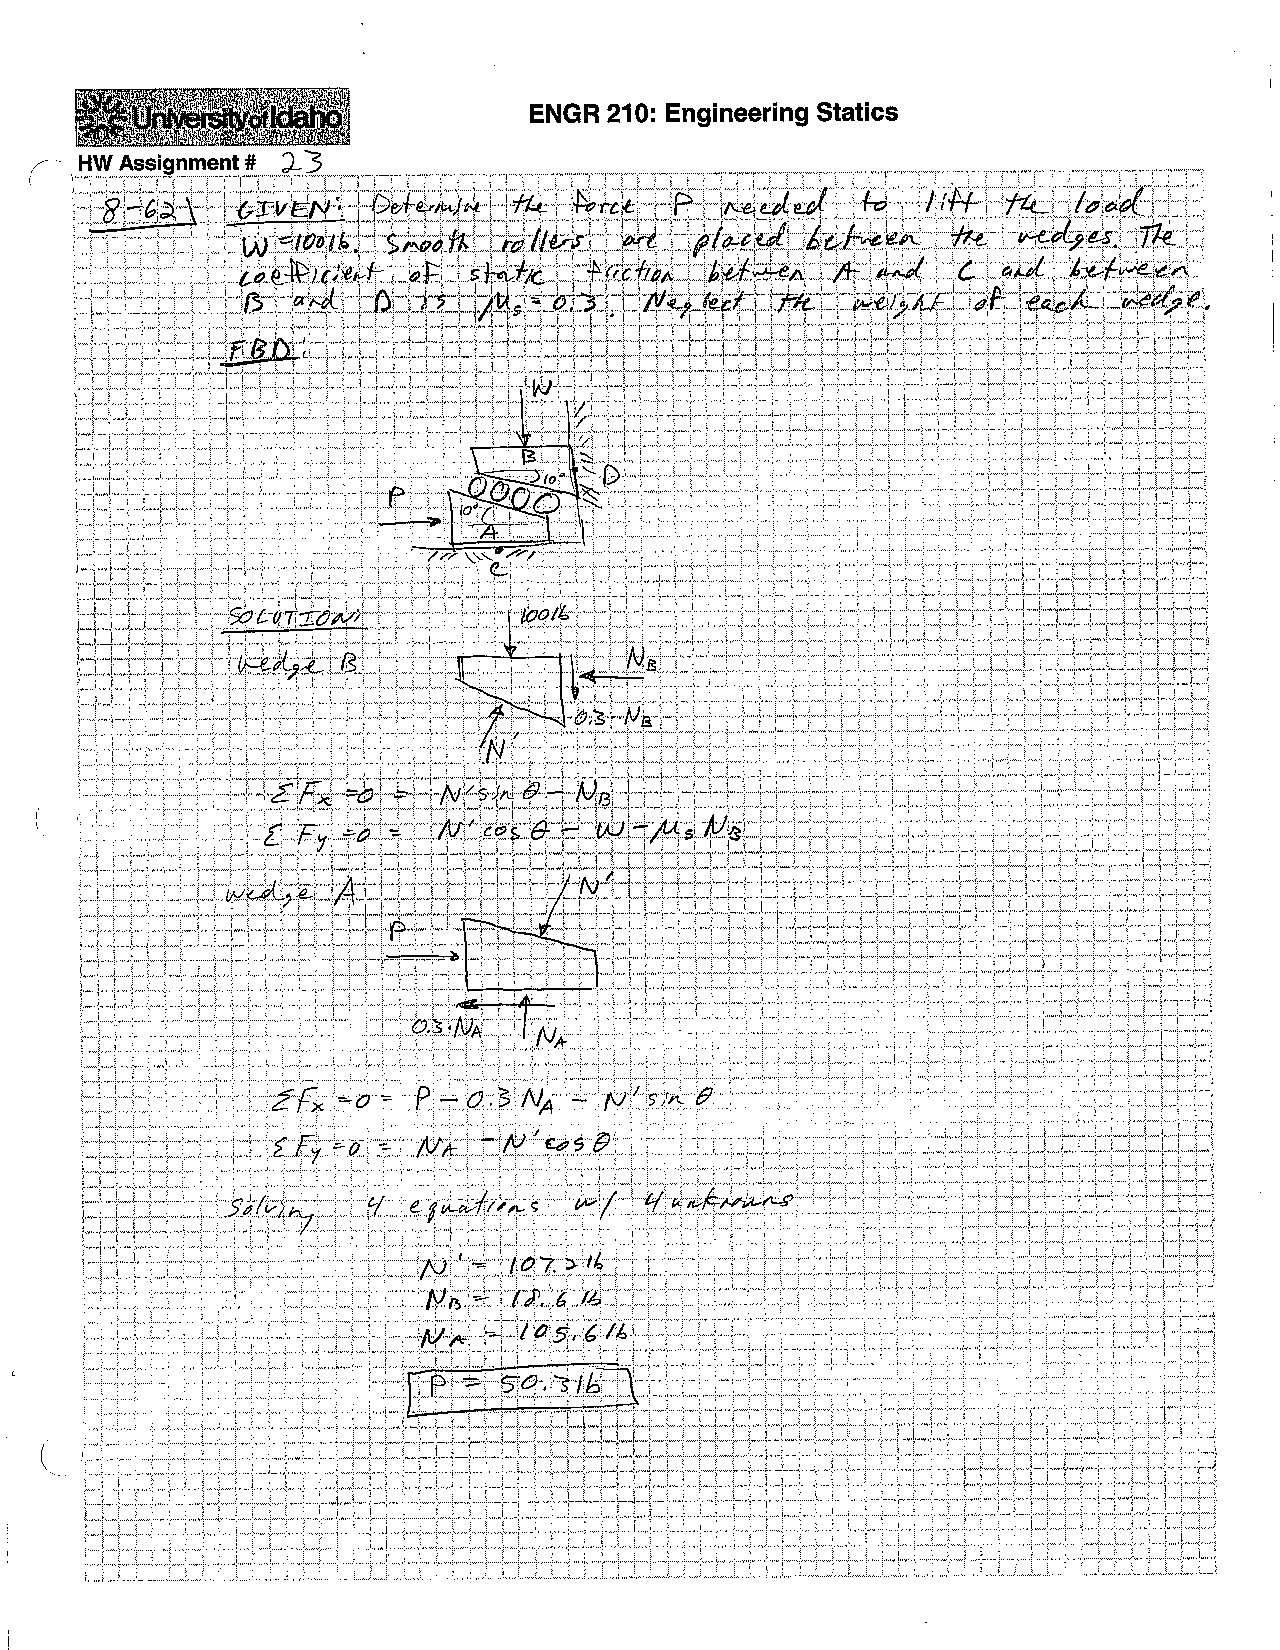 University of Idaho
ENGR 210: Engineering Statics
HW Assignment # 23
8-62 GIVEN: Determine the force P needed to lift the load
W=100lb. Smooth rollers are placed between the wedges. The
coefficient of static friction between A and C and between
B and D is μs = 0.3. Neglect the weight of each wedge.
FBD:
W
B
10°
D
P
10°
A
C
SOLUTION:
100 lb
wedge B
NB
0.3·NB
N'
ΣFx =0 = N' sin θ – NB
ΣFy =0 = N' cos θ – W – μs NB
wedge A
N'
P
0.3·NA
NA
ΣFx =0 = P – 0.3 NA – N' sin θ
ΣFy =0 = NA – N' cos θ
Solving 4 equations w/ 4 unknowns
N' = 107.2 lb
NB = 18.6 lb
NA = 105.6 lb
P = 50.3 lb